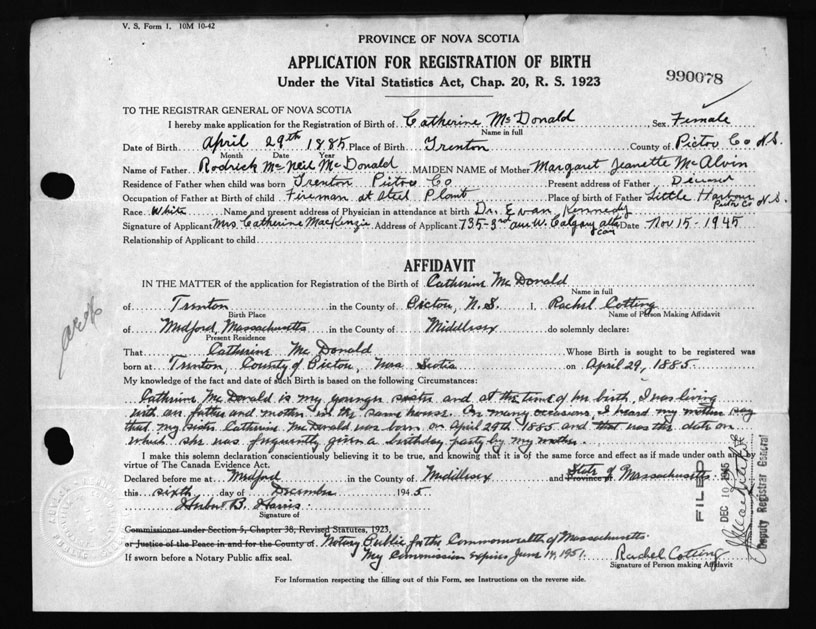 V. S. Form 1. 10M 10-42
PROVINCE OF NOVA SCOTIA
APPLICATION FOR REGISTRATION OF BIRTH
Under the Vital Statistics Act, Chap. 20, R. S. 1923
990078
TO THE REGISTRAR GENERAL OF NOVA SCOTIA
I hereby make application for the Registration of Birth of Catherine McDonald Sex Female
Name in full
Date of Birth April 29th 1885 Place of Birth Trenton County of Pictou Co N.S.
Month Date Year
Name of Father Rodrick McNeil McDonald MAIDEN NAME of Mother Margaret Jeanette McAlvin
Residence of Father when child was born Trenton Pictou Co Present address of Father
Occupation of Father at Birth of child Fireman at Steel Plant Place of birth of Father Little Harbour Pictou Co N.S.
Race White Name and present address of Physician in attendance at birth Dr. Evan Kennedy
Signature of Applicant Mrs Catherine MacKenzie Address of Applicant 735-3rd ave W. Calgary alta can Date Nov 15-1945
Relationship of Applicant to child
AFFIDAVIT
IN THE MATTER of the application for Registration of the Birth of Catherine McDonald
Name in full
of Trenton in the County of Pictou, N.S. I, Rachel Cotting
Birth Place Name of Person Making Affidavit
of Medford, Massachusetts in the County of Middlesex do solemnly declare:
Present Residence
That Catherine McDonald Whose Birth is sought to be registered was
born at Trenton, County of Pictou, Nova Scotia on April 29, 1885
My knowledge of the fact and date of such Birth is based on the following Circumstances:
Catherine McDonald is my younger sister and at the time of her birth, I was living
with our father and mother in the same house. On many occasions, I heard my mother say
that my sister Catherine McDonald was born on April 29th 1885 and that was the date on
which she was frequently given a birthday party by my mother.
I make this solemn declaration conscientiously believing it to be true, and knowing that it is of the same force and effect as if made under oath and by
virtue of The Canada Evidence Act.
Declared before me at Medford in the County of Middlesex and Province of State of Massachusetts
this sixth day of December 1945
Herbert B. Harris
Signature of
Commissioner under Section 5, Chapter 38, Revised Statutes, 1923,
or Justice of the Peace in and for the County of Notary Public for the Commonwealth of Massachusetts
If sworn before a Notary Public affix seal. My Commission expires June 14, 1951. Rachel Cotting
Signature of Person making Affidavit
For Information respecting the filling out of this Form, see Instructions on the reverse side.
FILED
DEC 10 1945
Deputy Registrar General